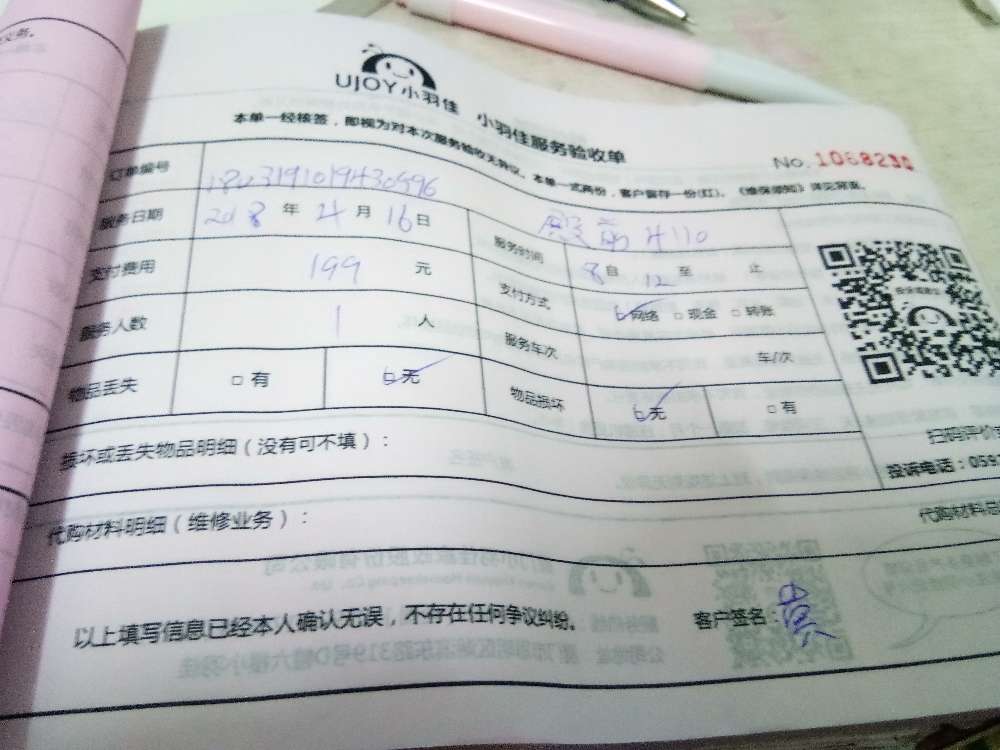 UJOY小羽佳 小羽佳服务验收单
No. 1068230
本单一经核签，即视为对本次服务验收无异议。本单一式两份，客户留存一份(红)。《维保须知》详见背面。
订单编号
殿前 4110
服务日期 2018 年 4 月 16 日 服务时间 8 自 12 至 止
支付费用 199 元 支付方式 网络 □ 现金 □ 转账
服务人数 1 人 服务车次 车/次
物品丢失 □ 有 无 物品损坏 无 □ 有
扫码评价
投诉电话：059
损坏或丢失物品明细（没有可不填）：
代购材料明细（维修业务）： 代购材料
以上填写信息已经本人确认无误，不存在任何争议纠纷。 客户签名：袁